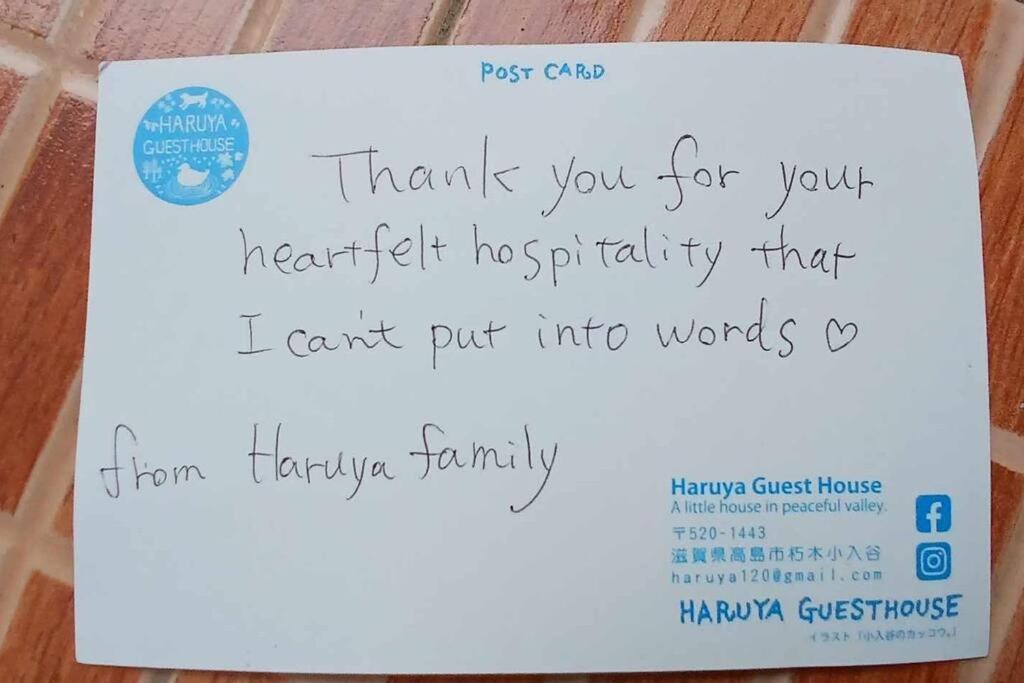 POST CARD
HARUYA
GUESTHOUSE
Thank you for your
heartfelt hospitality that
I can't put into words ♡
from Haruya family
Haruya Guest House
A little house in peaceful valley.
〒520-1443
滋賀県高島市朽木小入谷
haruya120@gmail.com
HARUYA GUESTHOUSE
イラスト「小入谷のカッコウ。」